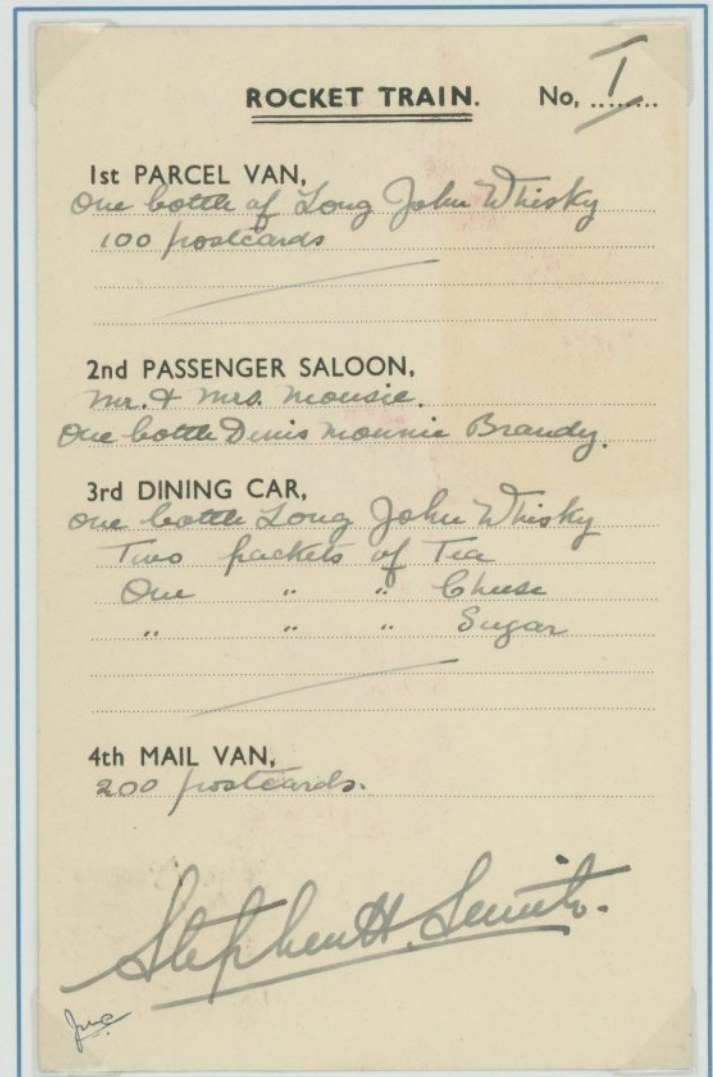 ROCKET TRAIN. No, I
1st PARCEL VAN,
One bottle of Long John Whisky
100 postcards
2nd PASSENGER SALOON,
Mr. & Mrs. Mousie.
One bottle Denis Mounie Brandy.
3rd DINING CAR,
One bottle Long John Whisky
Two packets of Tea
One " " Cheese
" " " Sugar
4th MAIL VAN,
200 postcards.
Stephen H. Smith.